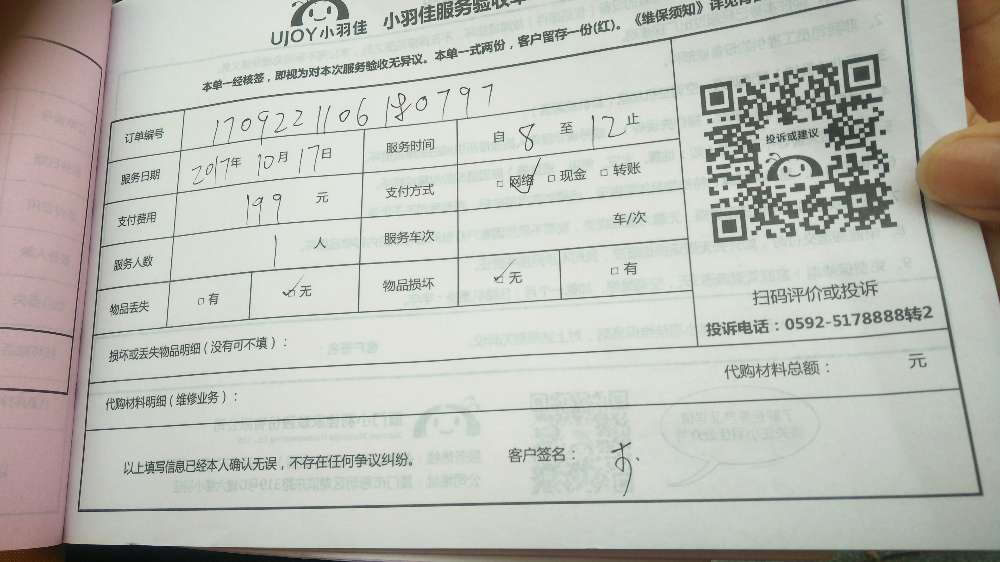 UJOY小羽佳 小羽佳服务验收单
本单一经核签，即视为对本次服务验收无异议。本单一式两份，客户留存一份(红)。《维保须知》详见背
订单编号 1709221106180797
服务日期 2017年10月17日 服务时间 自8至12止
支付费用 199元 支付方式 □网络 □现金 □转账
服务人数 1人 服务车次 车/次
物品丢失 □有 □无 物品损坏 □无 □有
投诉或建议
扫码评价或投诉
投诉电话：0592-5178888转2
损坏或丢失物品明细（没有可不填）：
代购材料明细（维修业务）： 代购材料总额： 元
以上填写信息已经本人确认无误，不存在任何争议纠纷。 客户签名：